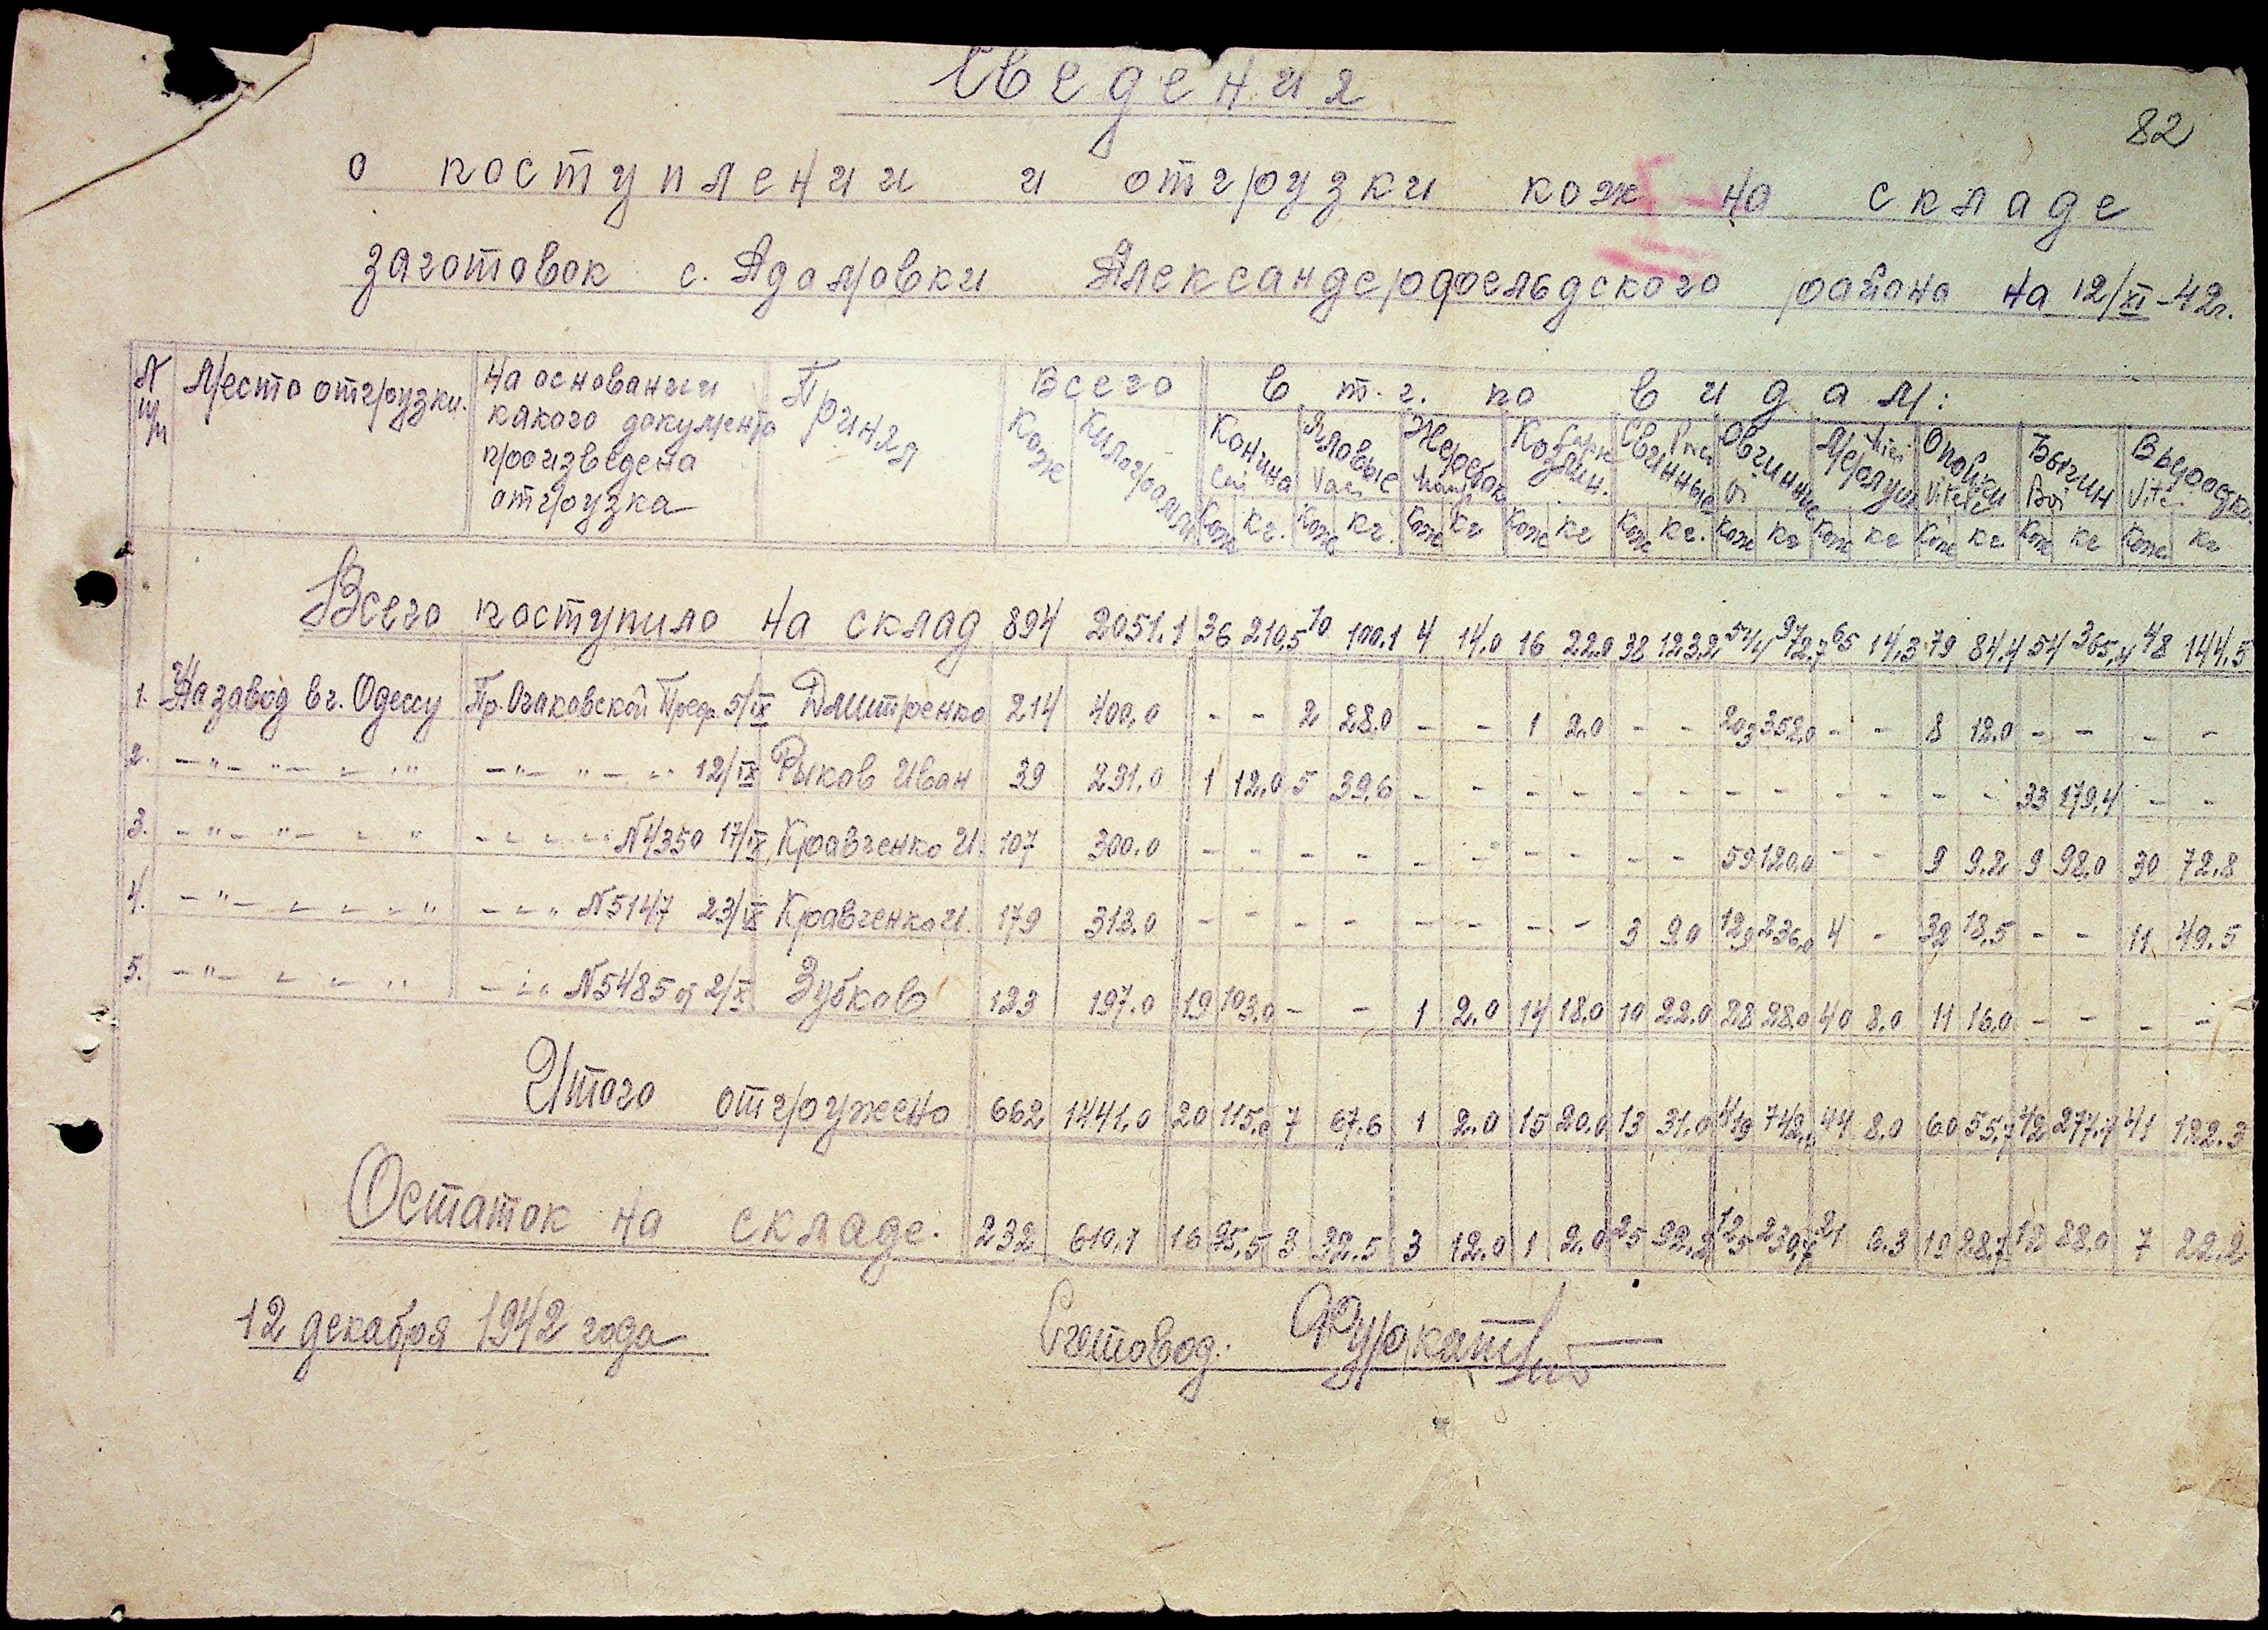 Сведения
82
о поступлении и отгрузки кож на складе
заготовок с. Адамовки Александерфельдского района на 12/XI-42г.
№ п/п Место отгрузки. На основании какого документа произведена отгрузка Принял Всего В т. ч. по видам:
Кож Килограмм Конина Cai Яловые Vaci Жеребок Mânji Козлин. Capre Свинные Porci Овчинные Oi Мерлуш Miei Опойки Viței Бычин Boi Выростки Vite
Кож Кг. Кож Кг. Кож Кг Кож Кг Кож Кг. Кож Кг Кож Кг Кож Кг Кож Кг Кож Кг
Всего поступило на склад 894 2051.1 36 210,5 10 100.1 4 14.0 16 22.0 38 123,2 544 972.7 65 14,3 79 84.4 54 365,4 48 144.5
1. На завод в г. Одессу Пр. Очаковской Преф. 5/IX Дмитренко 214 400.0 - - 2 28.0 - - 1 2.0 - - 203 352,0 - - 8 18.0 - - - -
2. -"- "- " " -"- "- " 12/IX Рыков Иван 39 231.0 1 12.0 5 39.6 - - - - - - - - - - - - 33 179,4 - -
3. -"- "- " " - " " " №4350 17/IX Кравченко И. 107 300.0 - - - - - - - - - - 59 120.0 - - 9 9.2 9 98.0 30 72.8
4. -"- " " " " - " " №5147 23/IX Кравченко И. 179 313.0 - - - - - - - - 3 9.0 129 236,0 4 - 32 18,5 - - 11 49.5
5. -"- " " " - " " №5485 от 2/X Зубков 123 197.0 19 103.0 - - 1 2.0 14 18.0 10 22.0 28 28.0 40 8.0 11 16.0 - - - -
Итого отгружено 662 1441.0 20 115.0 7 67.6 1 2.0 15 20.0 13 31.0 419 742,0 44 8.0 60 55,7 42 277.4 41 122.3
Остаток на складе. 232 610,1 16 95,5 3 32.5 3 12.0 1 2.0 25 92.2 125 230,7 21 6.3 19 28.7 12 88.0 7 22.2
12 декабря 1942 года Счетовод: